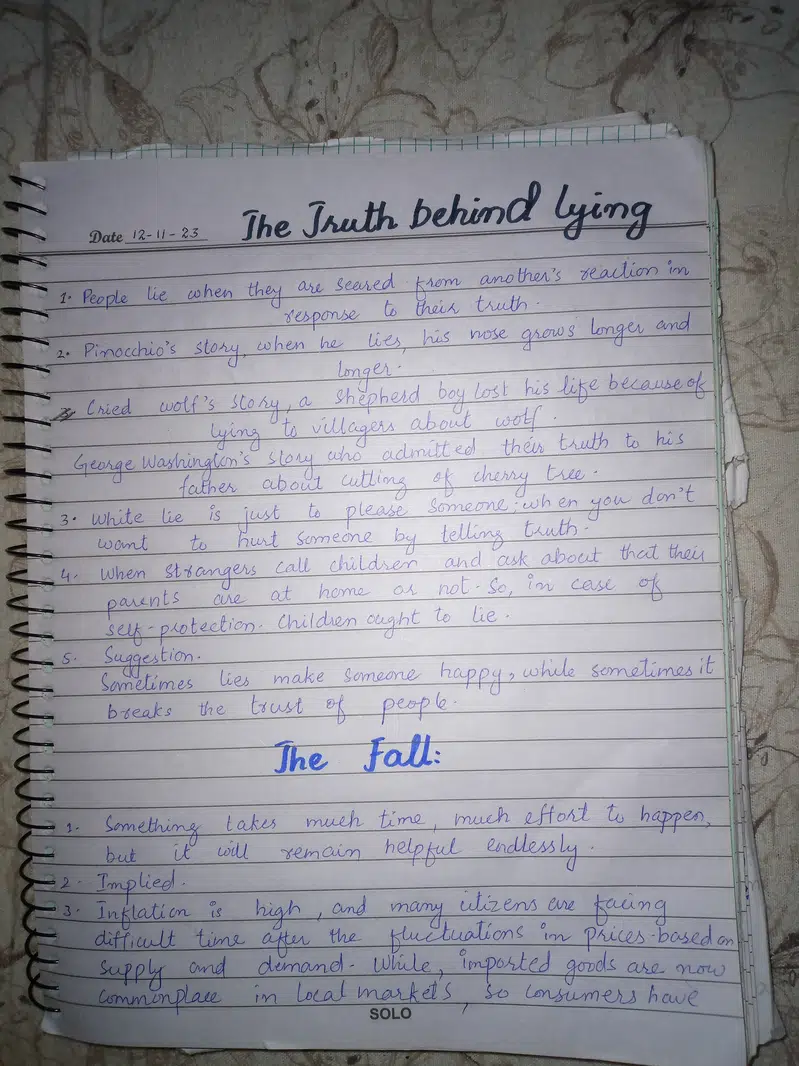 The Truth behind lying
Date 12-11-23
1. People lie when they are scared from another's reaction in
response to their truth.
2. Pinocchio's story, when he lies, his nose grows longer and
longer.
Cried wolf's story, a shepherd boy lost his life because of
lying to villagers about wolf.
George Washington's story who admitted their truth to his
father about cutting of cherry tree.
3. White lie is just to please someone; when you don't
want to hurt someone by telling truth.
4. When strangers call children and ask about that their
parents are at home or not. So, in case of
self-protection. Children ought to lie.
5. Suggestion.
Sometimes lies make someone happy, while sometimes it
breaks the trust of people.
The Fall:
1. Something takes much time, much effort to happen,
but it will remain helpful endlessly.
2. Implied.
3. Inflation is high, and many citizens are facing
difficult time after the fluctuations in prices-based on
supply and demand. While, imported goods are now
commonplace in local markets, so consumers have
SOLO